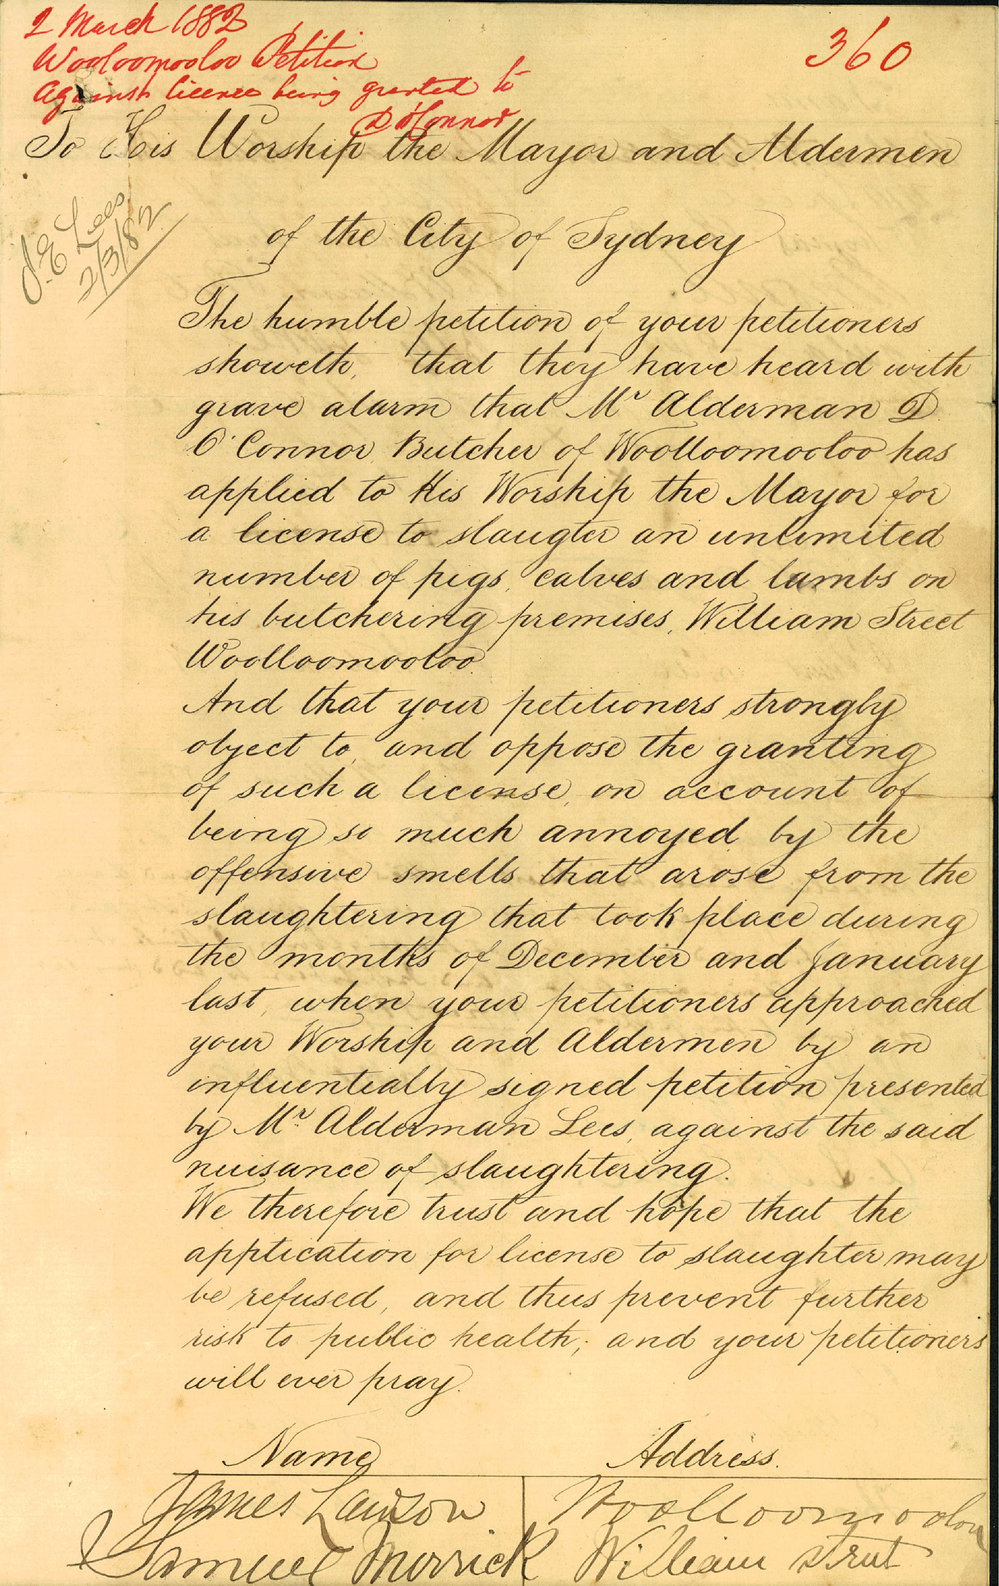 2 March 1882
360
Wooloomooloo Petition
against licence being granted to
D O'Connor
To His Worship the Mayor and Aldermen
J. E Lees
2/3/82
of the City of Sydney
The humble petition of your petitioners
showeth, that they have heard with
grave alarm that Mr Alderman D
O'Connor, Butcher of Woolloomooloo has
applied to His Worship the Mayor for
a license to slaugter an unlimited
number of pigs, calves and lambs on
his butchering premises, William Street
Woolloomooloo.
And that your petitioners strongly
object to, and oppose the granting
of such a license, on account of
being so much annoyed by the
offensive smells that arose from the
slaughtering that took place during
the months of December and January
last, when your petitioners approached
your Worship and Aldermen by an
influentially signed petition presented
by Mr. Alderman Lees, against the said
nuisance of slaughtering.
We therefore trust and hope that the
application for license to slaughter may
be refused, and thus prevent further
risk to public health; and your petitioners
will ever pray.
Name Address.
James Lawson Woolloomooloo
Samuel Morrick William Street